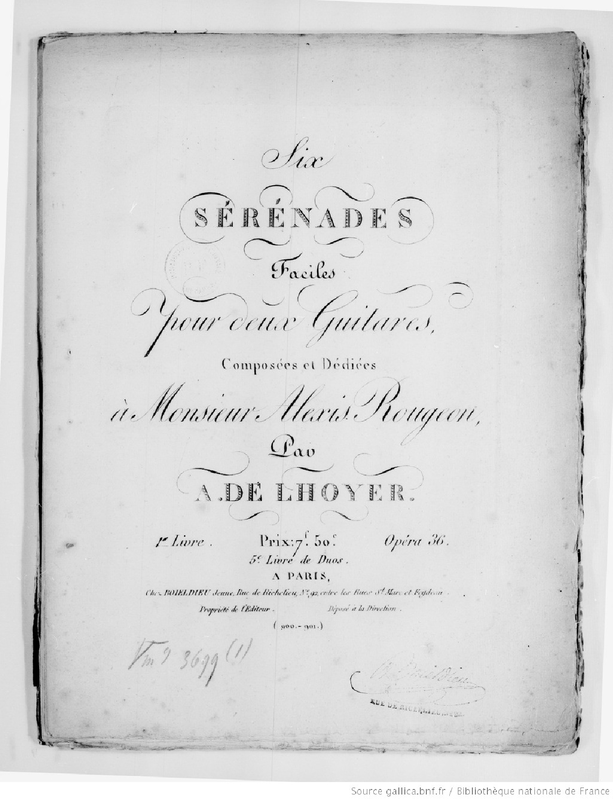 Six
SÉRÉNADES
Faciles
Pour deux Guitares,
Composées et Dédiées
à Monsieur Alexis Rougeon,
Par
A. DE LHOYER.
1er Livre. Prix: 7f. 50c. Opéra 36.
5e. Livre de Duos.
A PARIS,
Chez BOIELDIEU Jeune, Rue de Richelieu, No. 92, entre les Rues St. Marc et Feydeau.
Propriété de l'Editeur. Déposé à la Direction.
(900.-901.)
Vm9 3699 (1)
RUE DE RICHELIEU
Source gallica.bnf.fr / Bibliothèque nationale de France